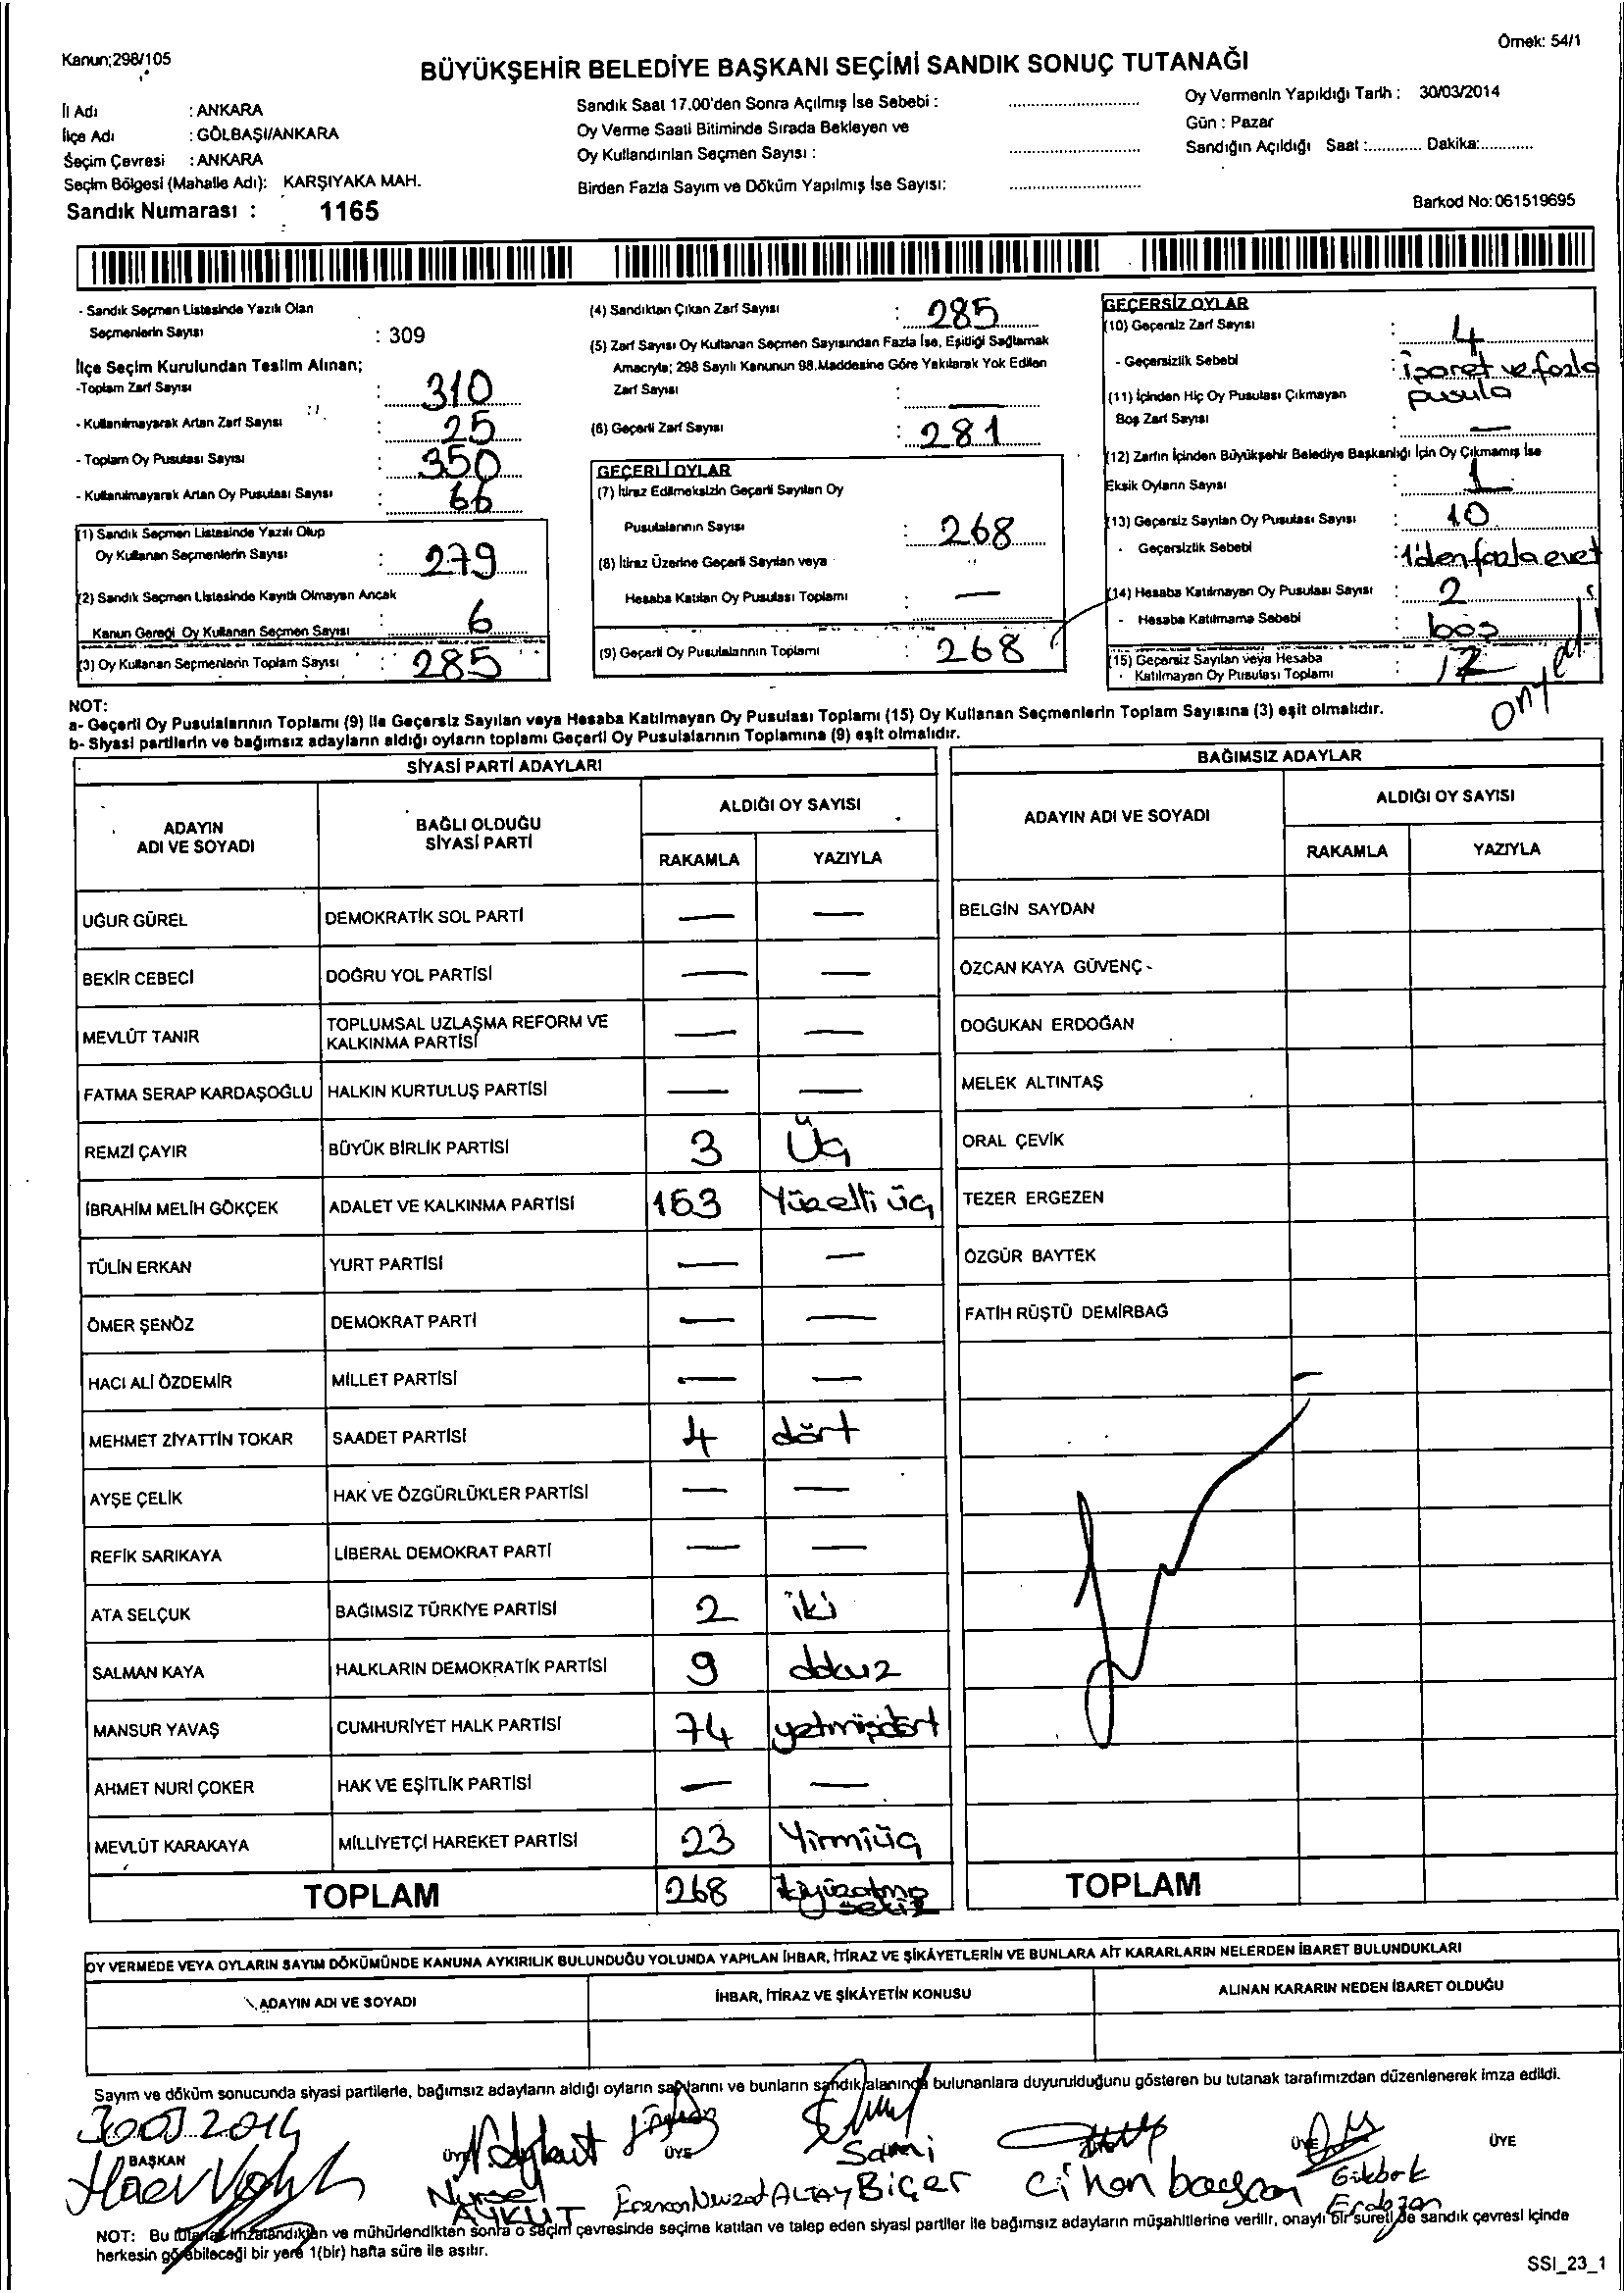 Kanun;298/105
Örnek: 54/1
BÜYÜKŞEHİR BELEDİYE BAŞKANI SEÇİMİ SANDIK SONUÇ TUTANAĞI
İl Adı : ANKARA
İlçe Adı : GÖLBAŞI/ANKARA
Seçim Çevresi : ANKARA
Seçim Bölgesi (Mahalle Adı): KARŞIYAKA MAH.
Sandık Numarası : 1165
Sandık Saat 17.00'den Sonra Açılmış İse Sebebi :
Oy Verme Saati Bitiminde Sırada Bekleyen ve
Oy Kullandırılan Seçmen Sayısı :
Birden Fazla Sayım ve Döküm Yapılmış İse Sayısı:
Oy Vermenin Yapıldığı Tarih : 30/03/2014
Gün : Pazar
Sandığın Açıldığı Saat :............ Dakika:............
Barkod No: 061519695
- Sandık Seçmen Listesinde Yazılı Olan
Seçmenlerin Sayısı : 309
İlçe Seçim Kurulundan Teslim Alınan;
-Toplam Zarf Sayısı : 310
- Kullanılmayarak Artan Zarf Sayısı : 25
- Toplam Oy Pusulası Sayısı : 350
- Kullanılmayarak Artan Oy Pusulası Sayısı : 66
(1) Sandık Seçmen Listesinde Yazılı Olup
Oy Kullanan Seçmenlerin Sayısı : 279
(2) Sandık Seçmen Listesinde Kayıtlı Olmayan Ancak
Kanun Gereği Oy Kullanan Seçmen Sayısı : 6
(3) Oy Kullanan Seçmenlerin Toplam Sayısı : 285
(4) Sandıktan Çıkan Zarf Sayısı : 285
(5) Zarf Sayısı Oy Kullanan Seçmen Sayısından Fazla İse, Eşitliği Sağlamak
Amacıyla; 298 Sayılı Kanunun 98.Maddesine Göre Yakılarak Yok Edilen
Zarf Sayısı : —
(6) Geçerli Zarf Sayısı : 281
GEÇERLİ OYLAR
(7) İtiraz Edilmeksizin Geçerli Sayılan Oy
Pusulalarının Sayısı : 268
(8) İtiraz Üzerine Geçerli Sayılan veya
Hesaba Katılan Oy Pusulası Toplamı : —
(9) Geçerli Oy Pusulalarının Toplamı : 268
GEÇERSİZ OYLAR
(10) Geçersiz Zarf Sayısı : 4
- Geçersizlik Sebebi : işaret ve fazla
pusula
(11) İçinden Hiç Oy Pusulası Çıkmayan
Boş Zarf Sayısı : —
(12) Zarfın İçinden Büyükşehir Belediye Başkanlığı İçin Oy Çıkmamış İse
Eksik Oyların Sayısı : 1
(13) Geçersiz Sayılan Oy Pusulası Sayısı : 10
- Geçersizlik Sebebi : 1'den fazla evet
(14) Hesaba Katılmayan Oy Pusulası Sayısı : 2
- Hesaba Katılmama Sebebi : boş
(15) Geçersiz Sayılan veya Hesaba
Katılmayan Oy Pusulası Toplamı : 17
NOT:
a- Geçerli Oy Pusulalarının Toplamı (9) ile Geçersiz Sayılan veya Hesaba Katılmayan Oy Pusulası Toplamı (15) Oy Kullanan Seçmenlerin Toplam Sayısına (3) eşit olmalıdır.
b- Siyasi partilerin ve bağımsız adayların aldığı oyların toplamı Geçerli Oy Pusulalarının Toplamına (9) eşit olmalıdır.
onyedi
SİYASİ PARTİ ADAYLARI
ADAYIN ADI VE SOYADI BAĞLI OLDUĞU SİYASİ PARTİ ALDIĞI OY SAYISI
RAKAMLA YAZIYLA
UĞUR GÜREL DEMOKRATİK SOL PARTİ — —
BEKİR CEBECİ DOĞRU YOL PARTİSİ — —
MEVLÜT TANIR TOPLUMSAL UZLAŞMA REFORM VE KALKINMA PARTİSİ — —
FATMA SERAP KARDAŞOĞLU HALKIN KURTULUŞ PARTİSİ — —
REMZİ ÇAYIR BÜYÜK BİRLİK PARTİSİ 3 Üç
İBRAHİM MELİH GÖKÇEK ADALET VE KALKINMA PARTİSİ 153 Yüzelli üç
TÜLİN ERKAN YURT PARTİSİ — —
ÖMER ŞENÖZ DEMOKRAT PARTİ — —
HACI ALİ ÖZDEMİR MİLLET PARTİSİ — —
MEHMET ZİYATTİN TOKAR SAADET PARTİSİ 4 dört
AYŞE ÇELİK HAK VE ÖZGÜRLÜKLER PARTİSİ — —
REFİK SARIKAYA LİBERAL DEMOKRAT PARTİ — —
ATA SELÇUK BAĞIMSIZ TÜRKİYE PARTİSİ 2 iki
SALMAN KAYA HALKLARIN DEMOKRATİK PARTİSİ 9 dokuz
MANSUR YAVAŞ CUMHURİYET HALK PARTİSİ 74 yetmişdört
AHMET NURİ ÇOKER HAK VE EŞİTLİK PARTİSİ — —
MEVLÜT KARAKAYA MİLLİYETÇİ HAREKET PARTİSİ 23 Yirmiüç
TOPLAM 268 ikiyüzatmış sekiz
BAĞIMSIZ ADAYLAR
ADAYIN ADI VE SOYADI ALDIĞI OY SAYISI
RAKAMLA YAZIYLA
BELGİN SAYDAN
ÖZCAN KAYA GÜVENÇ
DOĞUKAN ERDOĞAN
MELEK ALTINTAŞ
ORAL ÇEVİK
TEZER ERGEZEN
ÖZGÜR BAYTEK
FATİH RÜŞTÜ DEMİRBAĞ
TOPLAM
OY VERMEDE VEYA OYLARIN SAYIM DÖKÜMÜNDE KANUNA AYKIRILIK BULUNDUĞU YOLUNDA YAPILAN İHBAR, İTİRAZ VE ŞİKÂYETLERİN VE BUNLARA AİT KARARLARIN NELERDEN İBARET BULUNDUKLARI
ADAYIN ADI VE SOYADI İHBAR, İTİRAZ VE ŞİKÂYETİN KONUSU ALINAN KARARIN NEDEN İBARET OLDUĞU
Sayım ve döküm sonucunda siyasi partilerle, bağımsız adayların aldığı oyların sayılarını ve bunların sandık alanında bulunanlara duyurulduğunu gösteren bu tutanak tarafımızdan düzenlenerek imza edildi.
30 03 2014
BAŞKAN ÜYE ÜYE ÜYE ÜYE
Nursel AYKUT
Nevzat ALTAY
Sami BİÇER
Cihan
Gökberk
NOT: Bu tutanak imzalandıktan ve mühürlendikten sonra o seçim çevresinde seçime katılan ve talep eden siyasi partiler ile bağımsız adayların müşahitlerine verilir, onaylı bir sureti de sandık çevresi içinde
herkesin görebileceği bir yere 1(bir) hafta süre ile asılır.
SSI_23_1